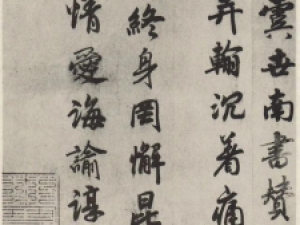 虞世南書
弄翰沉着痛
終身罔懈昆
情愛誨諭諄